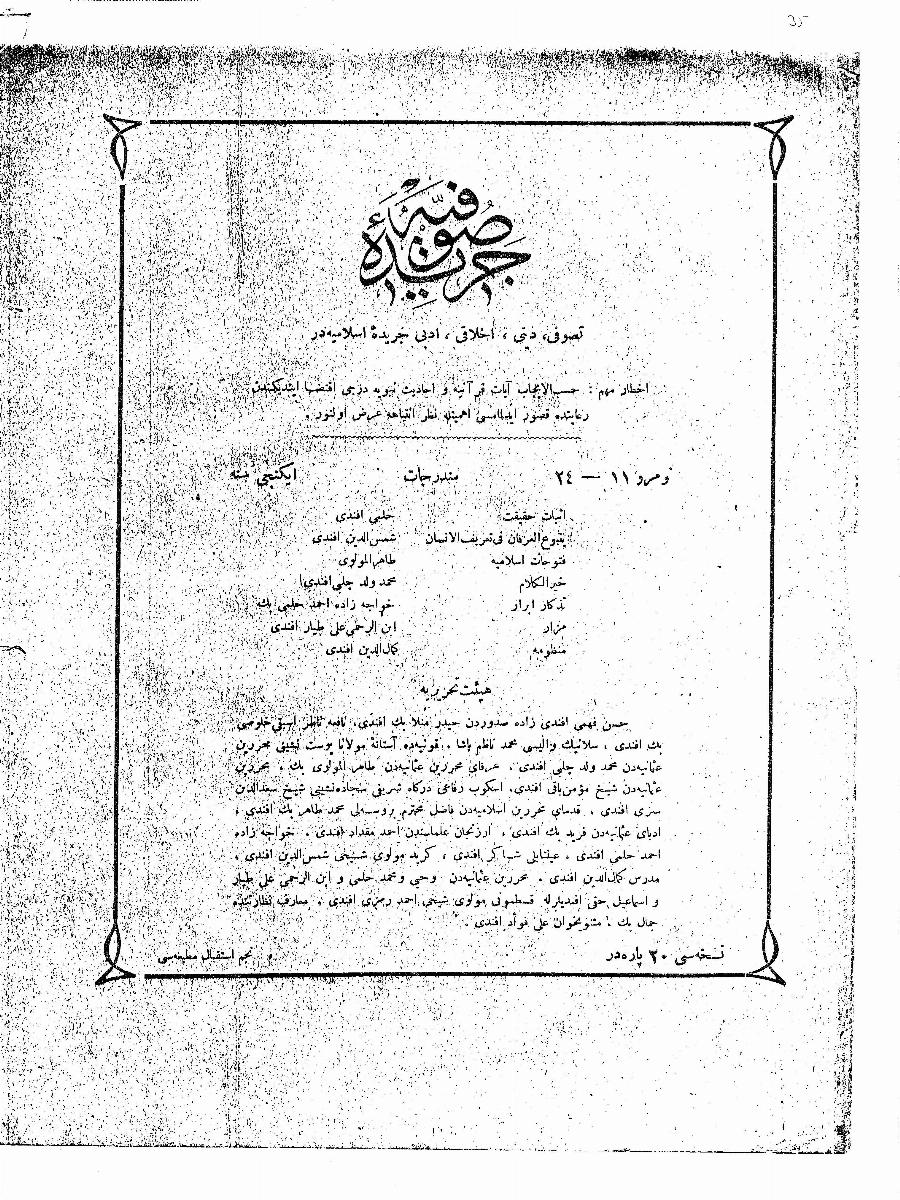 35
جريدۀ صوفيه
تصوفى، دينى ، اخلاقى ، ادبى جريدۀ اسلاميه‌در
اخطار مهم : حسب‌الايجاب آيات قرآنيه و احاديث نبويه درجى اقتضا ايتديكندن
رعايتده قصور ايدلمامسى اهميتله نظر انتباهه عرض اولنور .
نومرو ١١ — ٢٤ مندرجات ايكنجى سنه
اثبات حقيقت حلمى افندى
ينبوع العرفان فى تعريف الانسان شمس‌الدين افندى
فتوحات اسلاميه طاهر المولوى
خيرالكلام محمد ولد چلبى افندى
تذكار ابرار خواجه زاده احمد حلمى بك
مزار ابن الرحمى على طيار افندى
منظومه كمال‌الدين افندى
هيئت تحريريه
حسن فهمى افندى زاده صدوردن حيدر منلا بك افندى، نافعه ناظر اسبقى خلوصى
بك افندى ، سلانيك واليسى محمد ناظم پاشا ، قونيه‌ده آستانۀ مولانا پوست نشينى محررين
عثمانيه‌دن محمد ولد چلبى افندى ، عرفاى محررين عثمانيه‌دن طاهر المولوى بك ، محررين
عثمانيه‌دن شيخ مؤمن باقى افندى، اسكوب رفاعى درگاه شريفى سجاده‌نشينى شيخ سعدالدين
سرى افندى ، قدماى محررين اسلاميه‌دن فاضل محترم بروسه‌لى محمد طاهر بك افندى ،
ادباى عثمانيه‌دن فريد بك افندى ، ارزنجان علماسندن احمد مقداد افندى ، خواجه زاده
احمد حلمى افندى ، عينتابلى شاكر افندى ، كريد مولوى شيخى شمس‌الدين افندى ،
مدرس كمال‌الدين افندى ، محررين عثمانيه‌دن وحيى و محمد حلمى و ابن الرحمى على طيار
و اسماعيل حقى افنديلرله قسطمونى مولوى شيخى احمد رمزى افندى ، معارف نظارتنده
جمال بك ، مثنويخوان على فؤاد افندى .
نسخه‌سى ٢٠ پاره‌در نجم استقبال مطبعه‌سى